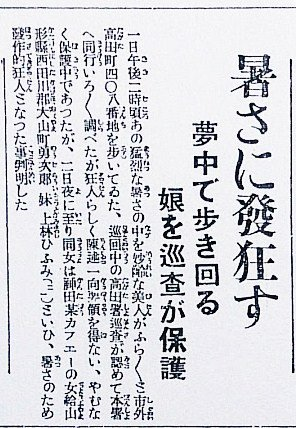 暑さに發狂す
夢中で歩き回る
娘を巡査が保護
一日午後二時頃あの猛烈な暑さの中を妙齢な美人がふら〳〵と市外
高田町四〇八番地を歩いてゐた、巡回中の高田署巡査が認めて本署
へ同行いろ〳〵調べたが狂人らしく陳述一向要領を得ない、やむな
く保護中であつたが、二日夜に至り同女は神田某カフエーの女給山
形縣西田川郡大山町勇次郎妹上林ひふみ(二二)といひ、暑さのため
發作的狂人となつた事判明した